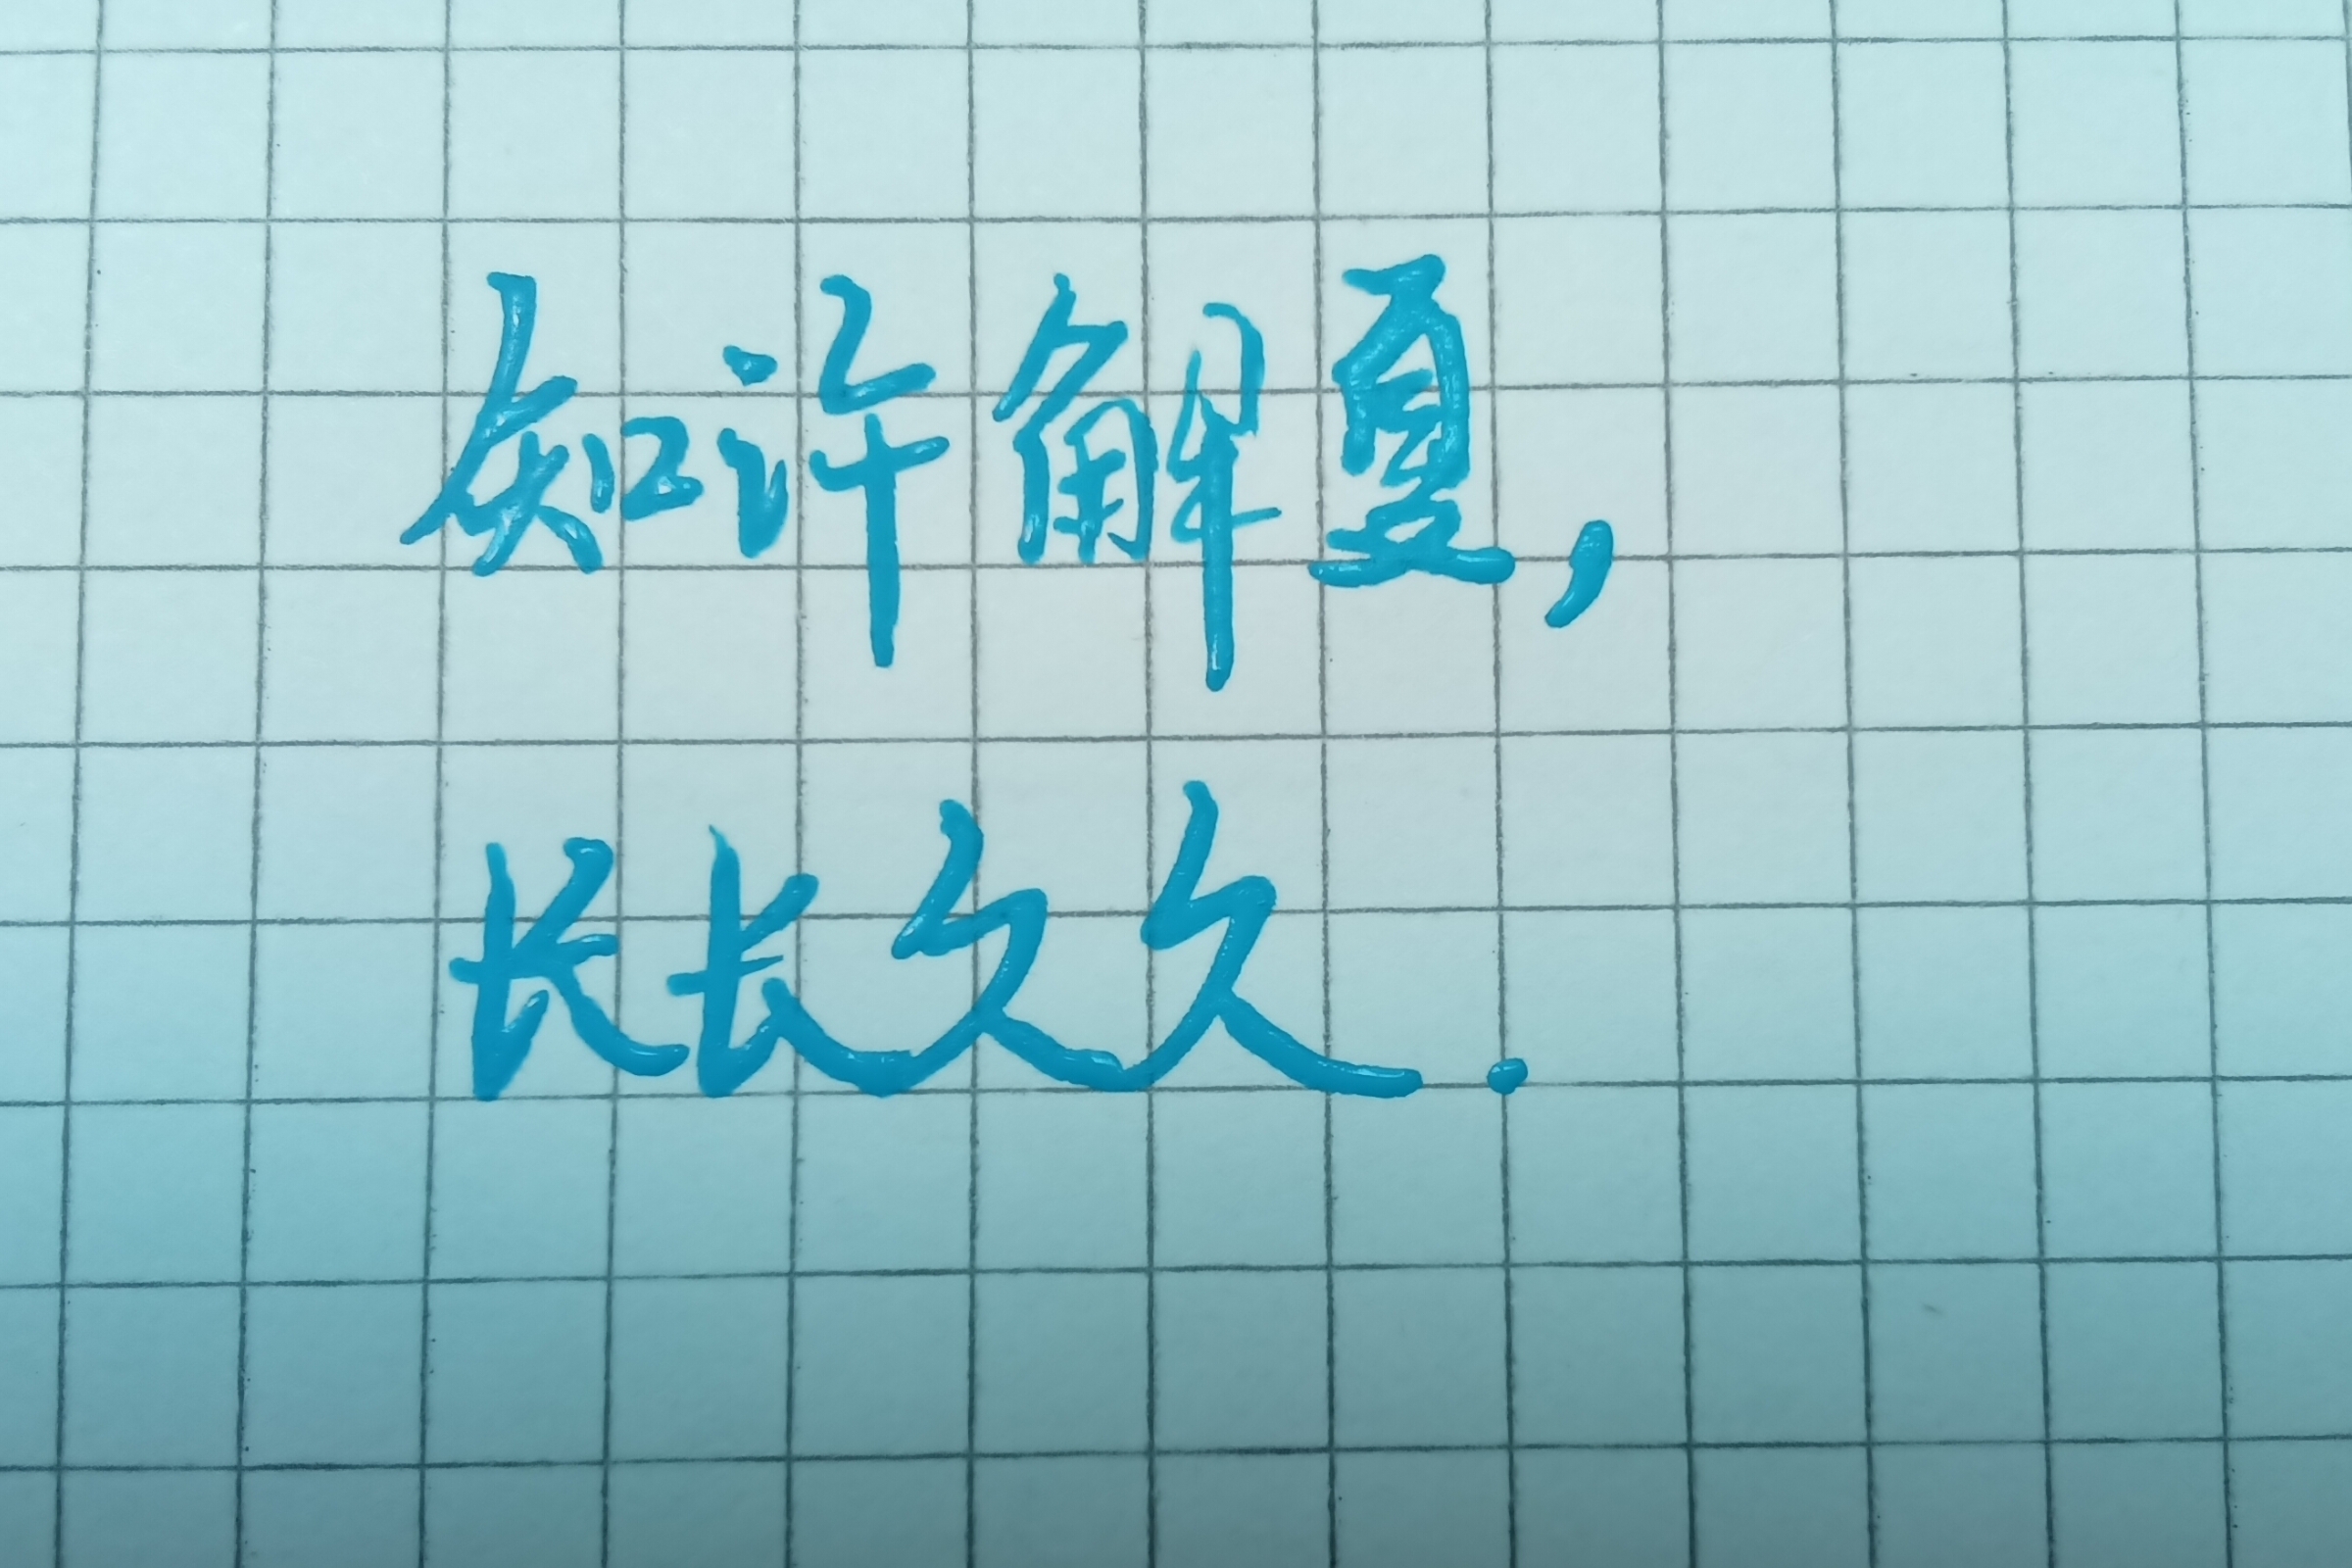 知许解夏,
长长久久.